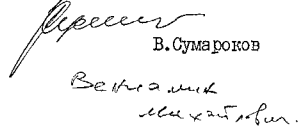 В.Сумароков
Вениамин
Михайлович.